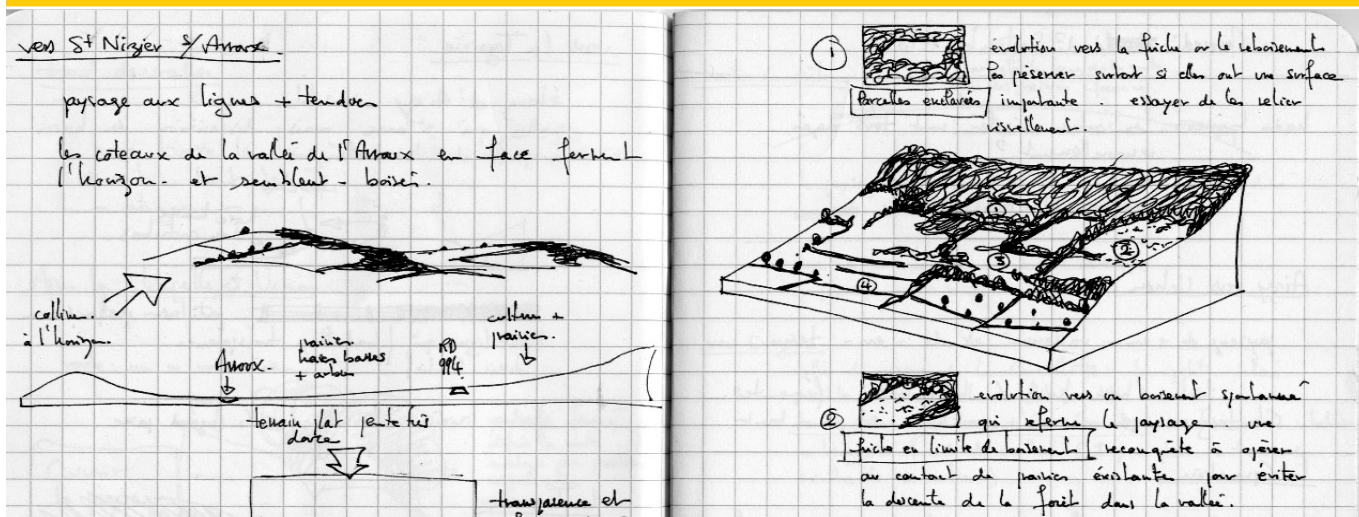 vers St Nizier s/Arroux.
paysage aux lignes + tendues
les coteaux de la vallée de l'Arroux en face ferment
l'horizon - et semblent - boisés.
collines
à l'horizon.
Arroux.
prairies
haies basses
+ arbres
RD
994
cultures +
prairies.
terrain plat pente très
douce
transparence et
①
évolution vers la friche ou le reboisement
à préserver surtout si elles ont une surface
Parcelles enclavées importante. essayer de les relier
visuellement.
①
②
③
④
②
évolution vers un boisement spontané
qui referme le paysage. une
friche en limite de boisement reconquête à opérer
au contact de prairies existantes pour éviter
la descente de la forêt dans la vallée.